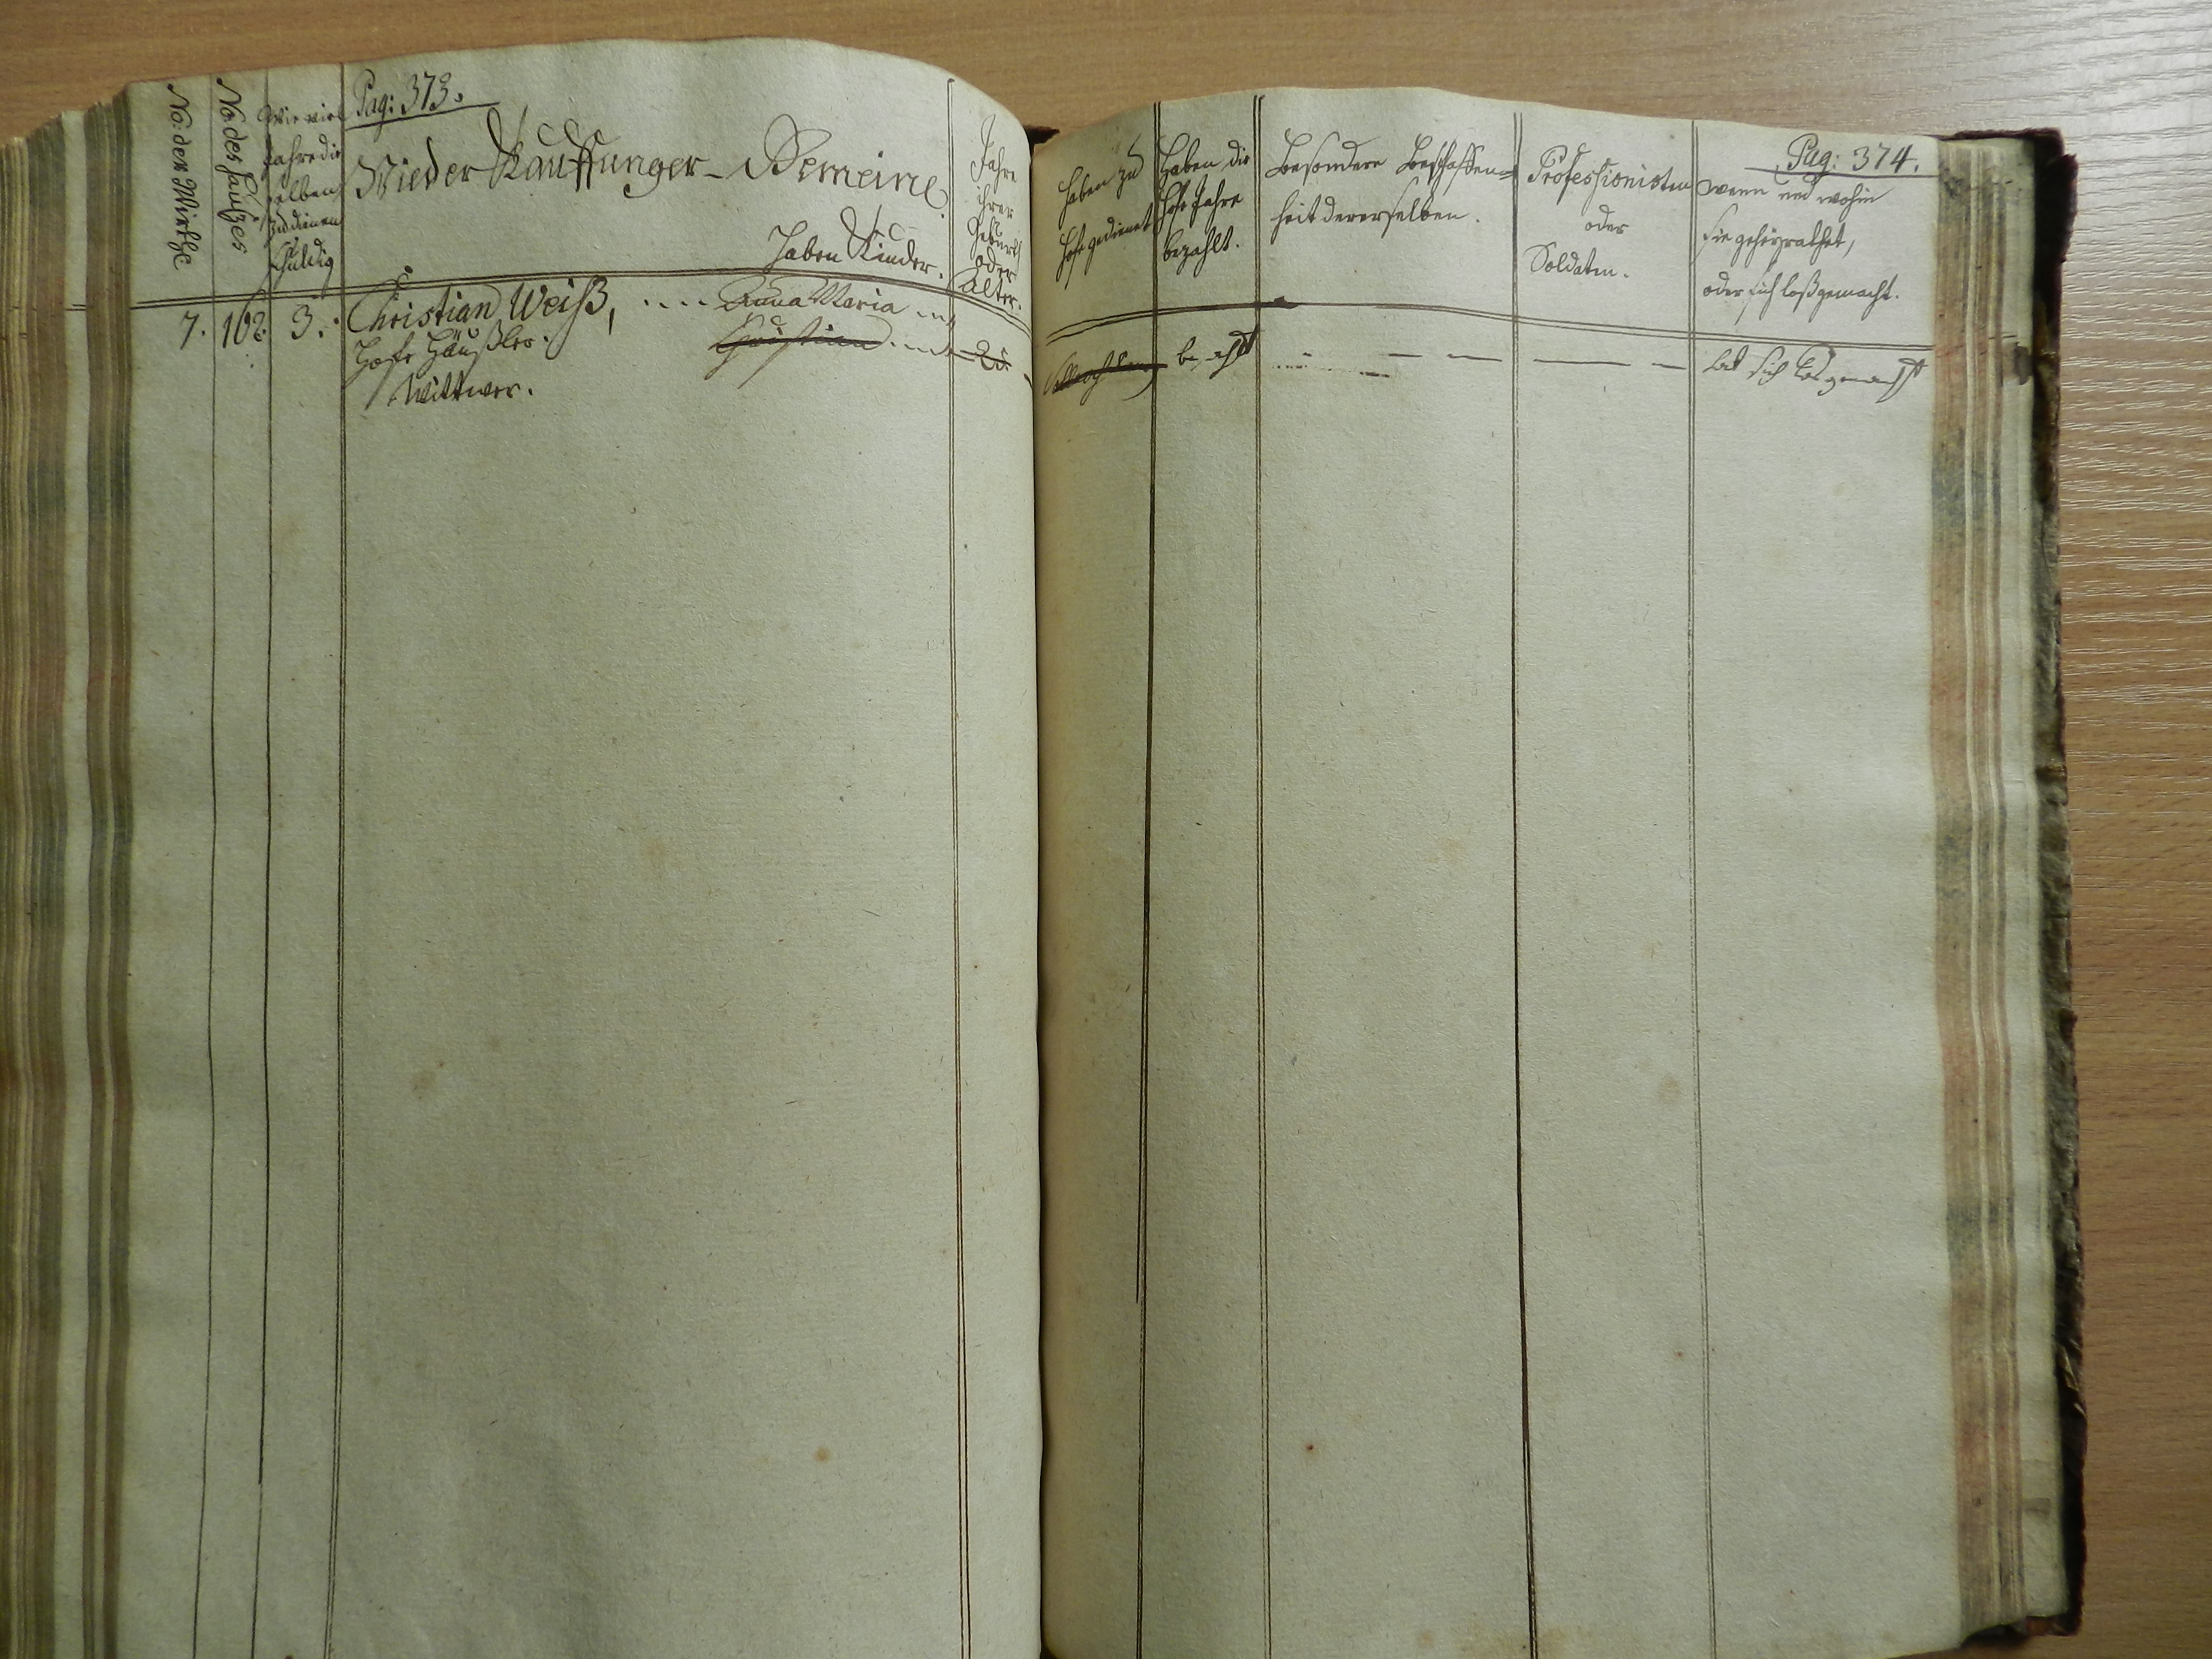 Pag: 373.
No: der Wirthe
No: des Haußes
Wie viel
Jahre die
selben
zu dienen
schuldig
Nieder Kauffunger-Gemeine.
Haben Kinder.
Jahre
ihrer
Geburth
oder
Alter.
7. 162. 3. Christian Weiß, .... Anna Maria
Hofe Häußler. Christian 25.
Wittwer.
Pag: 374.
Haben zu
Hofe gedienet
Haben die
Hofe Jahre
bezahlt.
Besondere Beschaffen=
heit derer selben.
Professionisten
oder
Soldaten.
wenn und wohin
sie geheyrathet,
oder sich loßgemacht.
bezahlt hat sich los gemacht